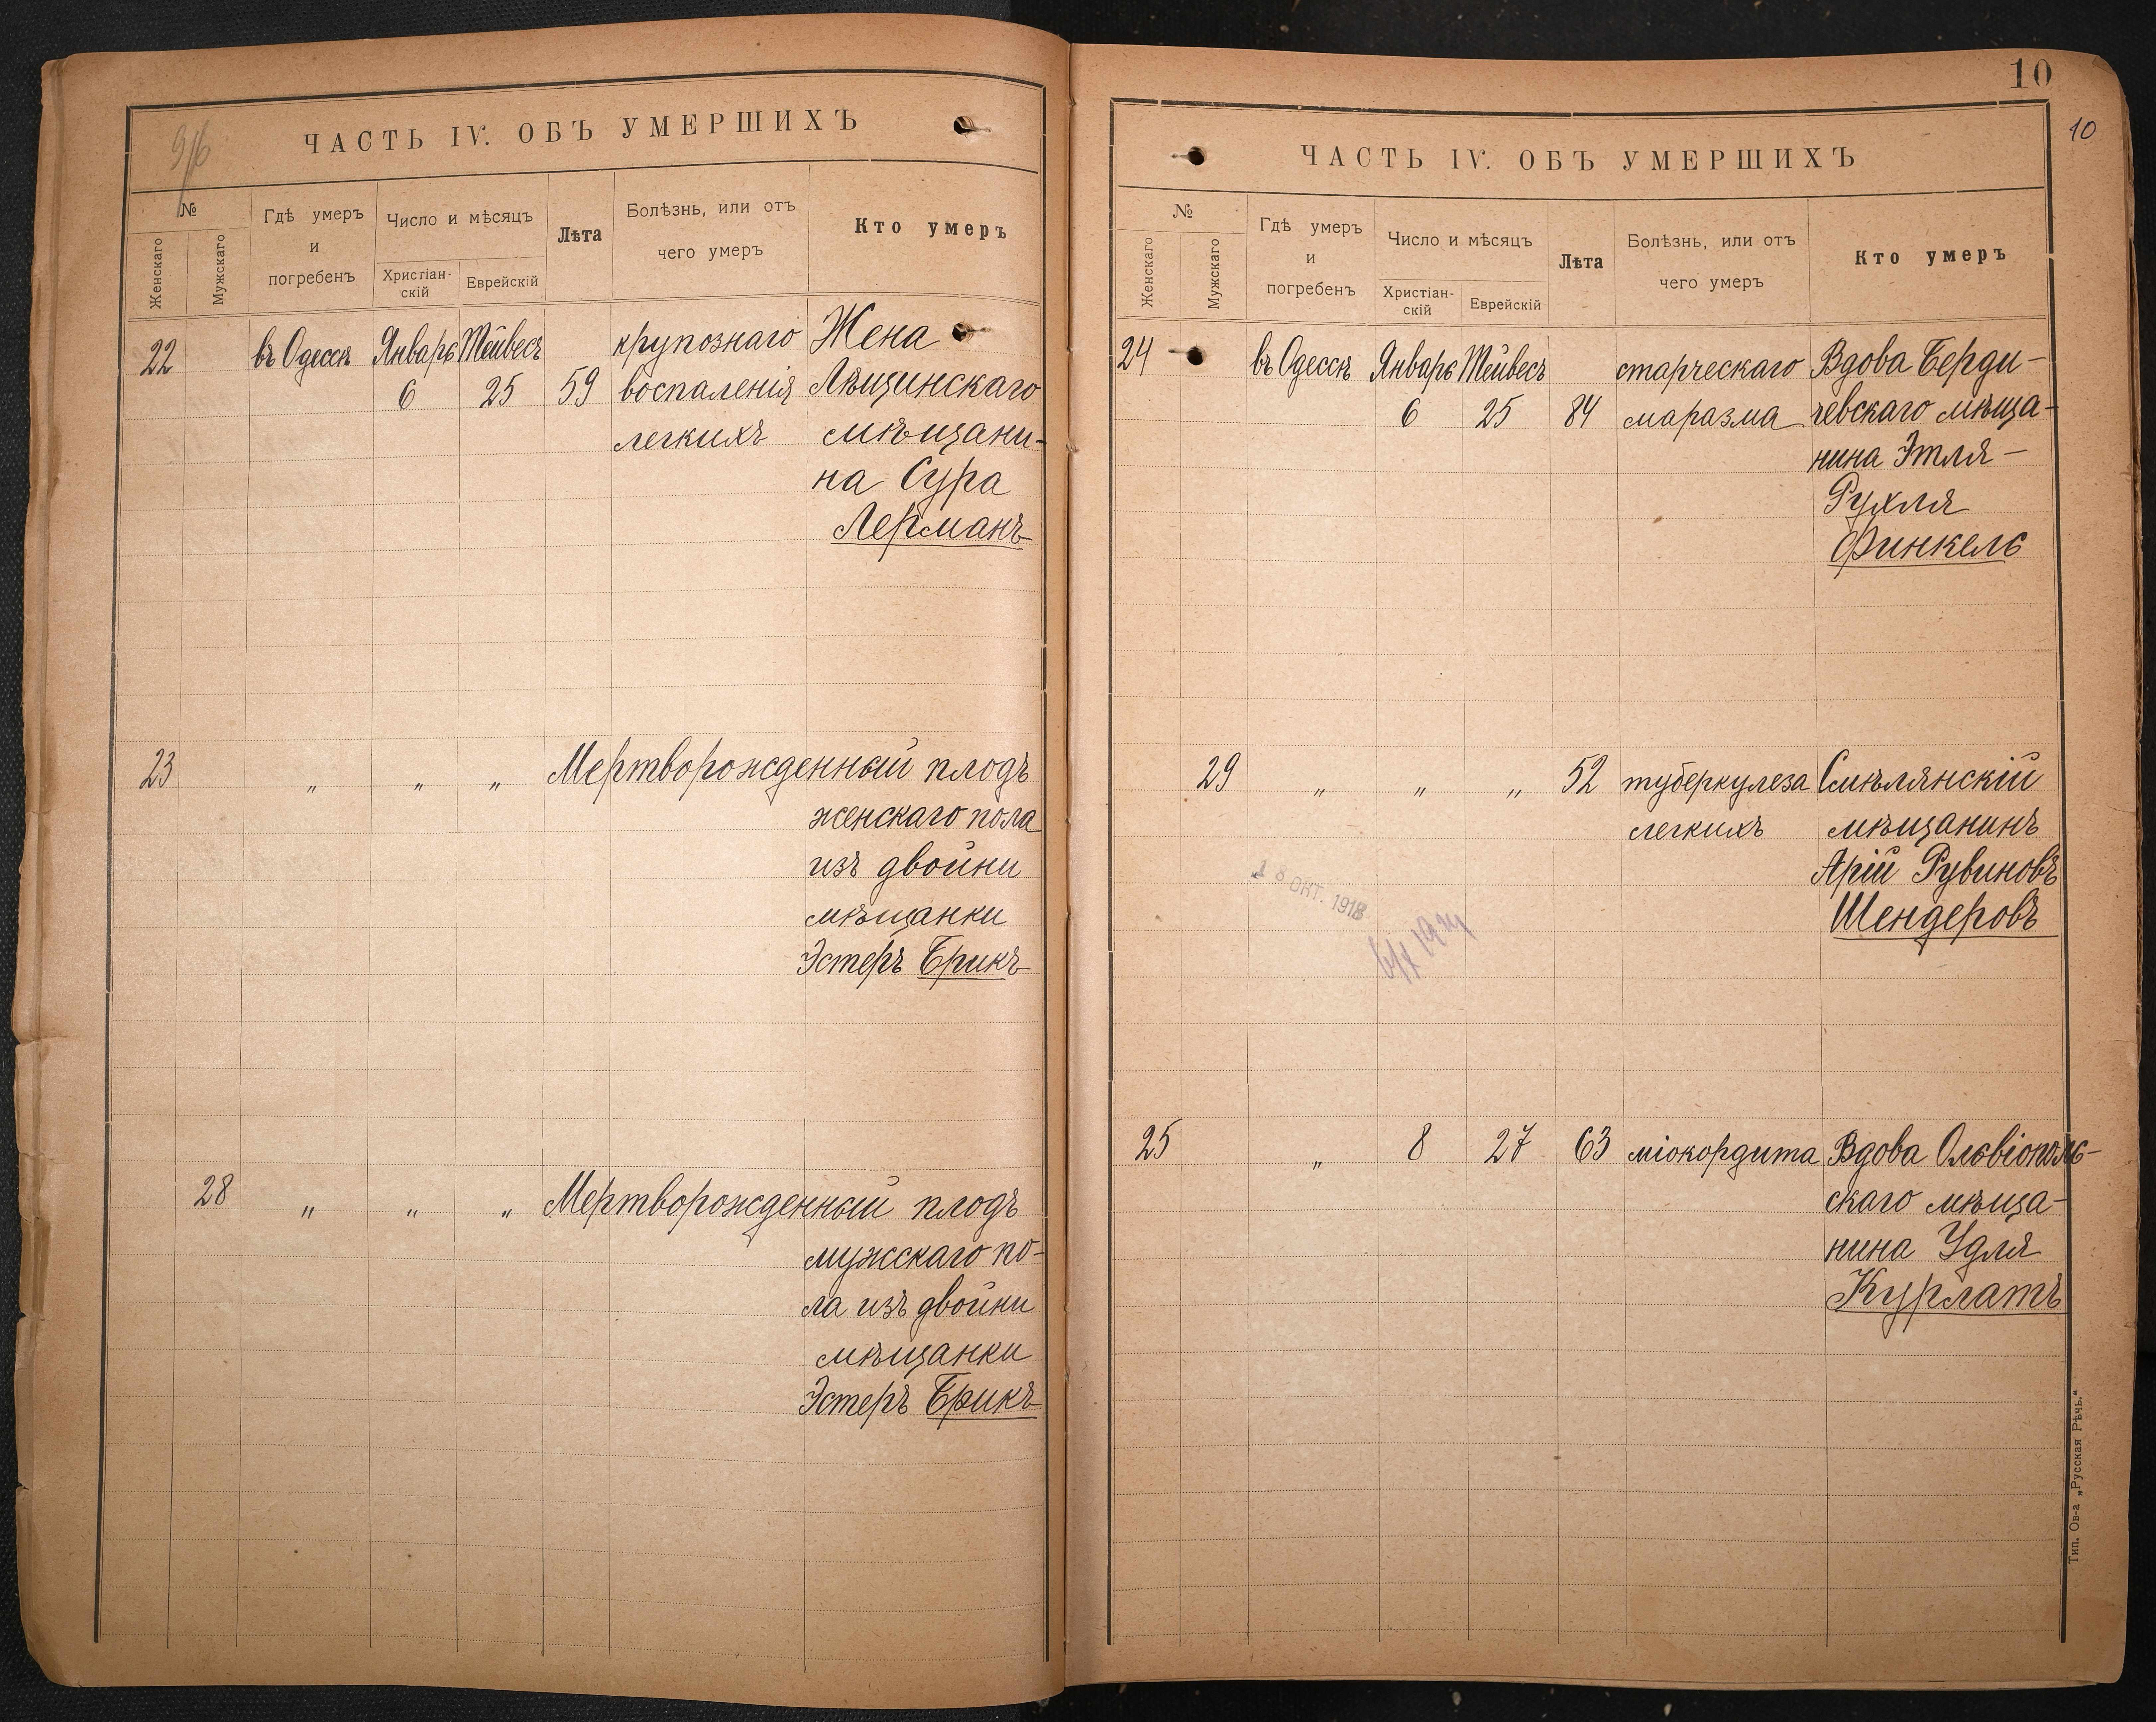 ЧАСТЬ IV. ОБЪ УМЕРШИХЪ
№
Женскаго
Мужскаго
Гдѣ умеръ
и
погребенъ
Число и мѣсяцъ
Христіан-
скій
Еврейскій
Лѣта
Болѣзнь, или отъ
чего умеръ
Кто умеръ
22 въ Одессѣ Январь Тейвесъ крупознаго Жена
6 25 59 воспаленія Лѣщинскаго
легкихъ мѣщани-
на Сура
Лерманъ
23 „ „ „ Мертворожденный плодъ
женскаго пола
изъ двойни
мѣщанки
Эстеръ Брикъ
28 „ „ „ Мертворожденный плодъ
мужскаго по-
ла изъ двойни
мѣщанки
Эстеръ Брикъ
10
10
ЧАСТЬ IV. ОБЪ УМЕРШИХЪ
№
Женскаго
Мужскаго
Гдѣ умеръ
и
погребенъ
Число и мѣсяцъ
Христіан-
скій
Еврейскій
Лѣта
Болѣзнь, или отъ
чего умеръ
Кто умеръ
24 въ Одессѣ Январь Тейвесъ старческаго Вдова Берди-
6 25 84 маразма чевскаго мѣща-
нина Этля-
Рухля
Финкель
29 „ „ „ 52 туберкулеза Смѣлянскій
легкихъ мѣщанинъ
Арій Рувиновъ
Шендеровъ
18 ОКТ. 1918
25 „ 8 27 63 міокордита Вдова Ольвіополь-
скаго мѣща-
нина Удля
Курлатъ
Тип. Ов-а „Русская Рѣчь.“